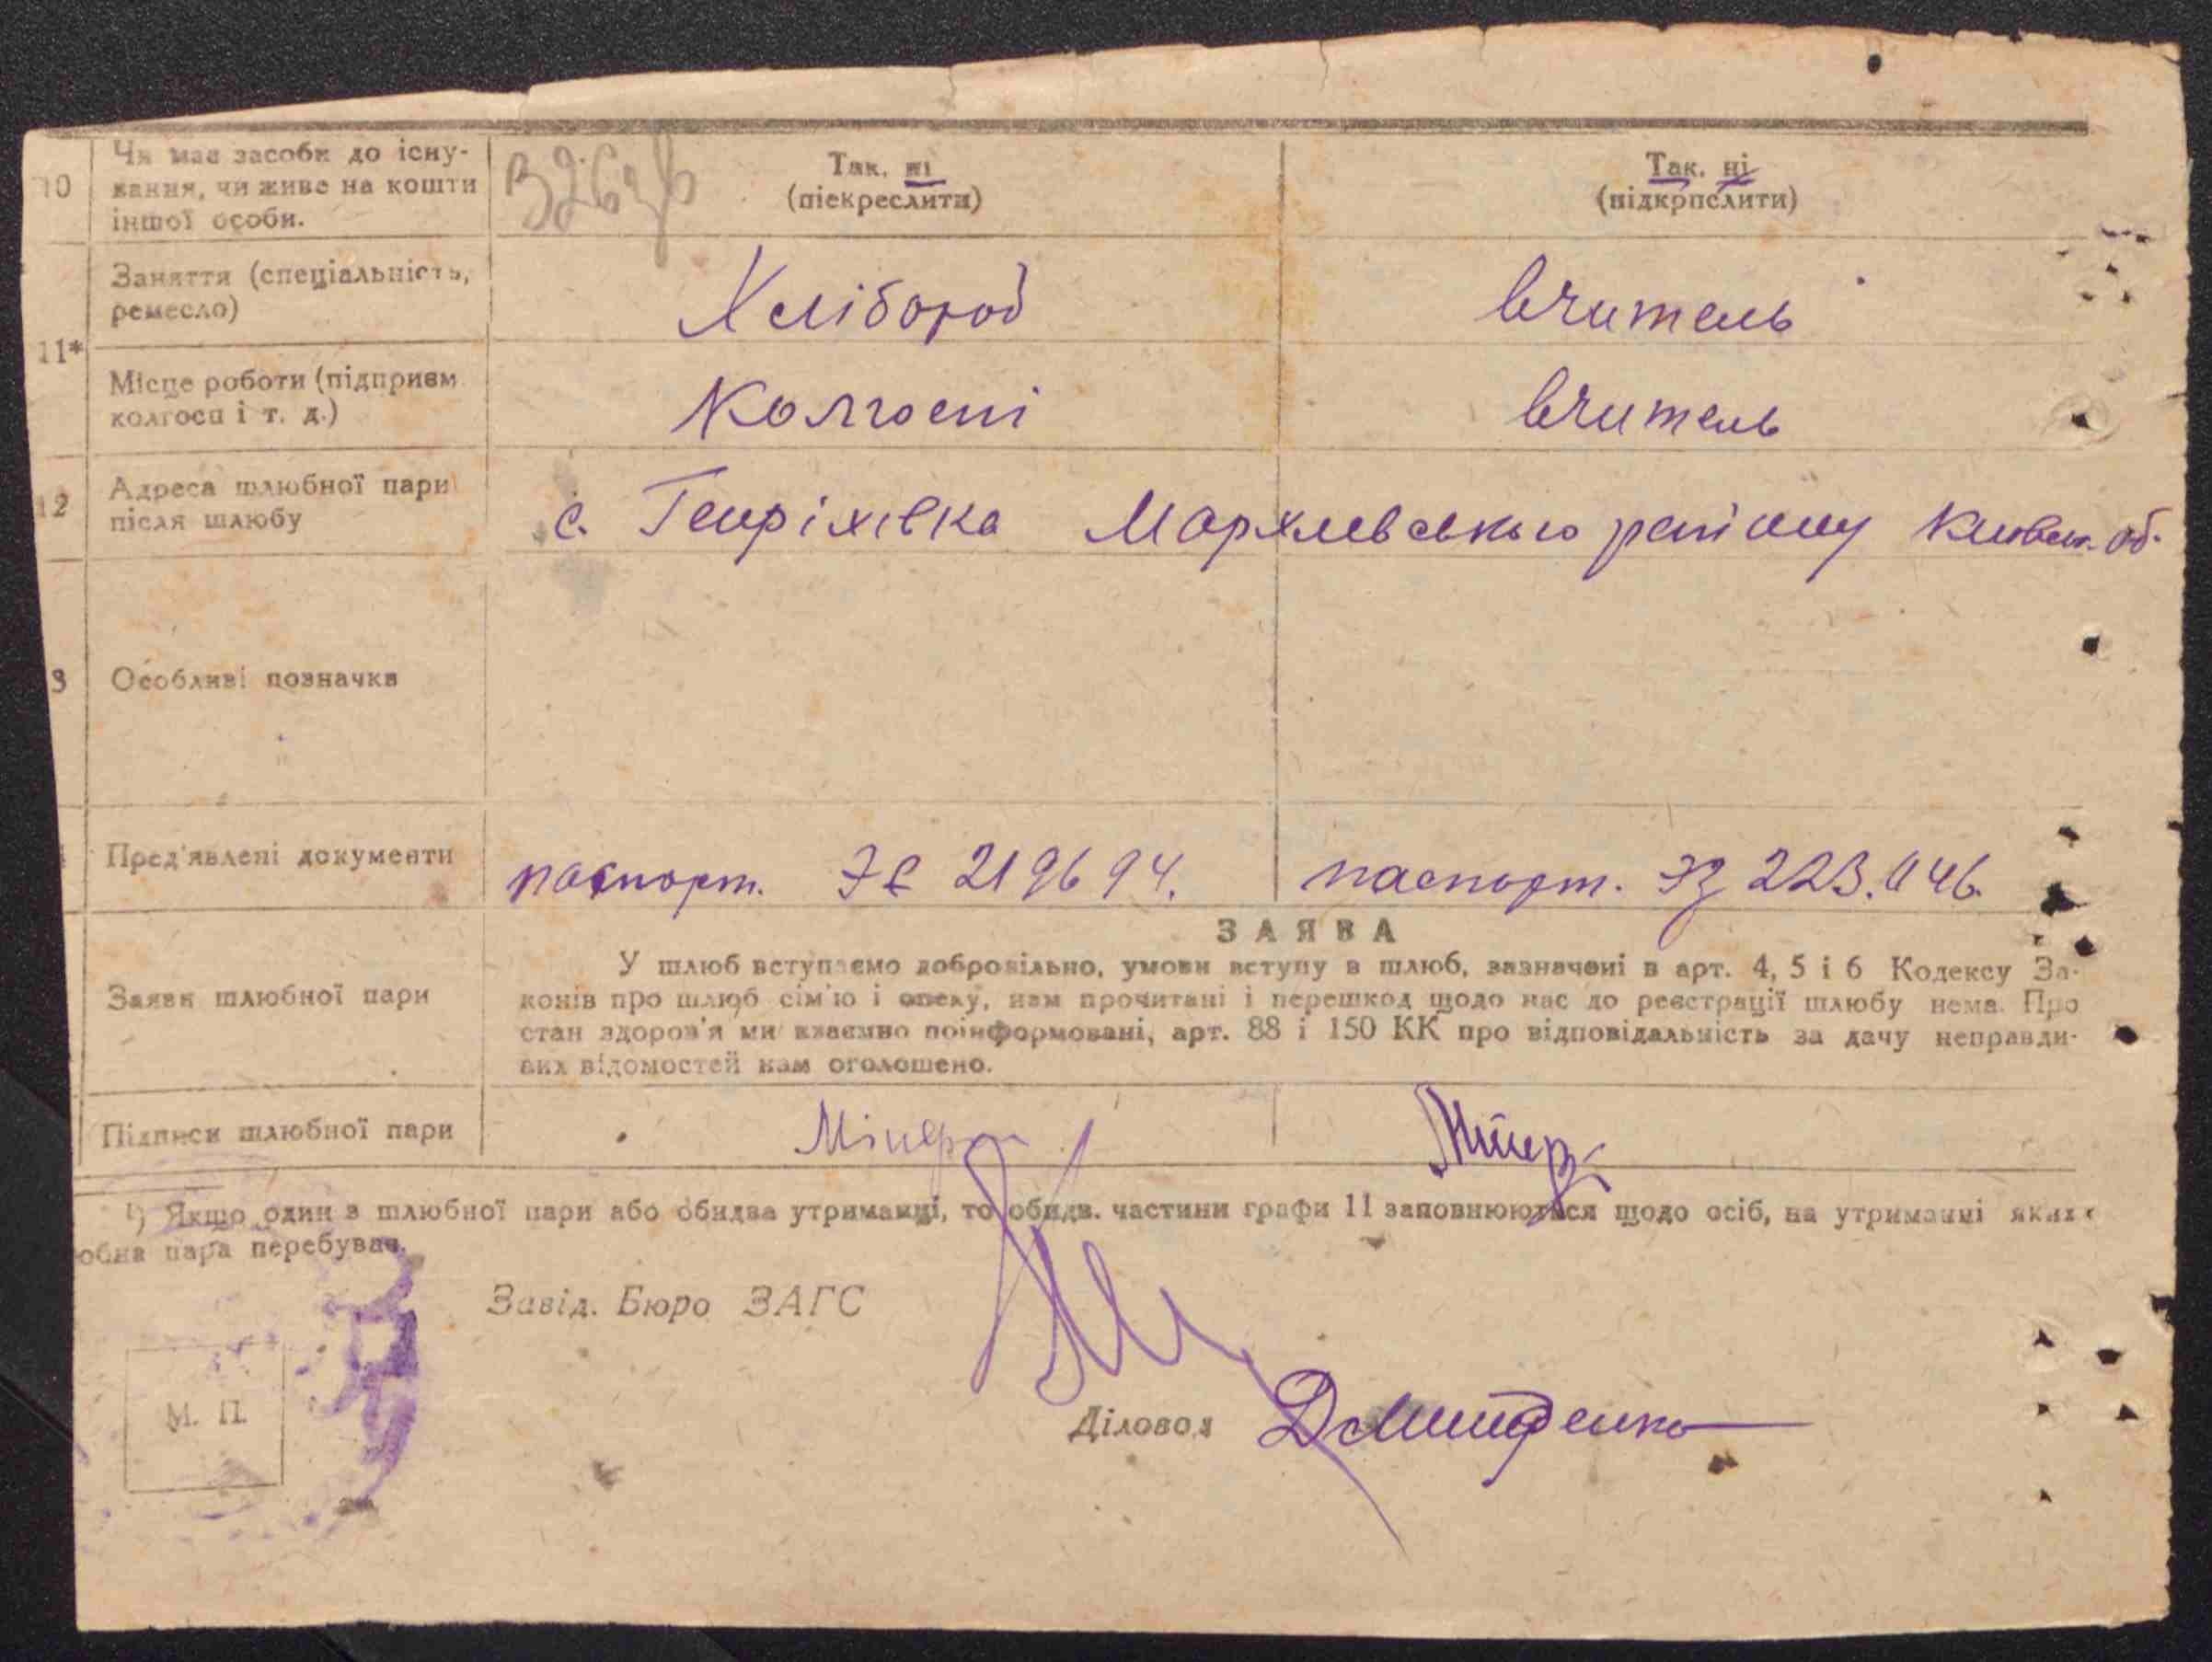 10 Чи має засоби до існування, чи живе на кошти іншої особи.
Так, ні
(піекреслити)
Так, ні
(підкрпслити)
Заняття (спеціальність, ремесло)
Хлібороб
Вчитель
11*
Місце роботи (підприєм колгосп і т. д.)
Колгоспі
Вчитель
12 Адреса шлюбної пари після шлюбу
с. Генріхівка Мархлевського району Київськ. об.
3 Особливі позначки
Пред'явлені документи
паспорт.
219694.
паспорт.
ЗАЯВА
Заяви шлюбної пари
У шлюб вступаємо добровільно, умови вступу в шлюб, зазначені в арт. 4, 5 і 6 Кодексу За-
конів про шлюб сім'ю і опеку, нам прочитані і перешкод щодо нас до реєстрації шлюбу нема. Про
стан здоров'я ми взаємно поінформовані, арт. 88 і 150 КК про відповідальність за дачу неправди-
вих відомостей нам оголошено.
Підписи шлюбної пари
¹) Якщо один з шлюбної пари або обидва утриманці, то обидв. частини графи 11 заповнюються щодо осіб, на утриманні яких
обна пара перебуває.
Завід. Бюро ЗАГС
М. П.
Діловод